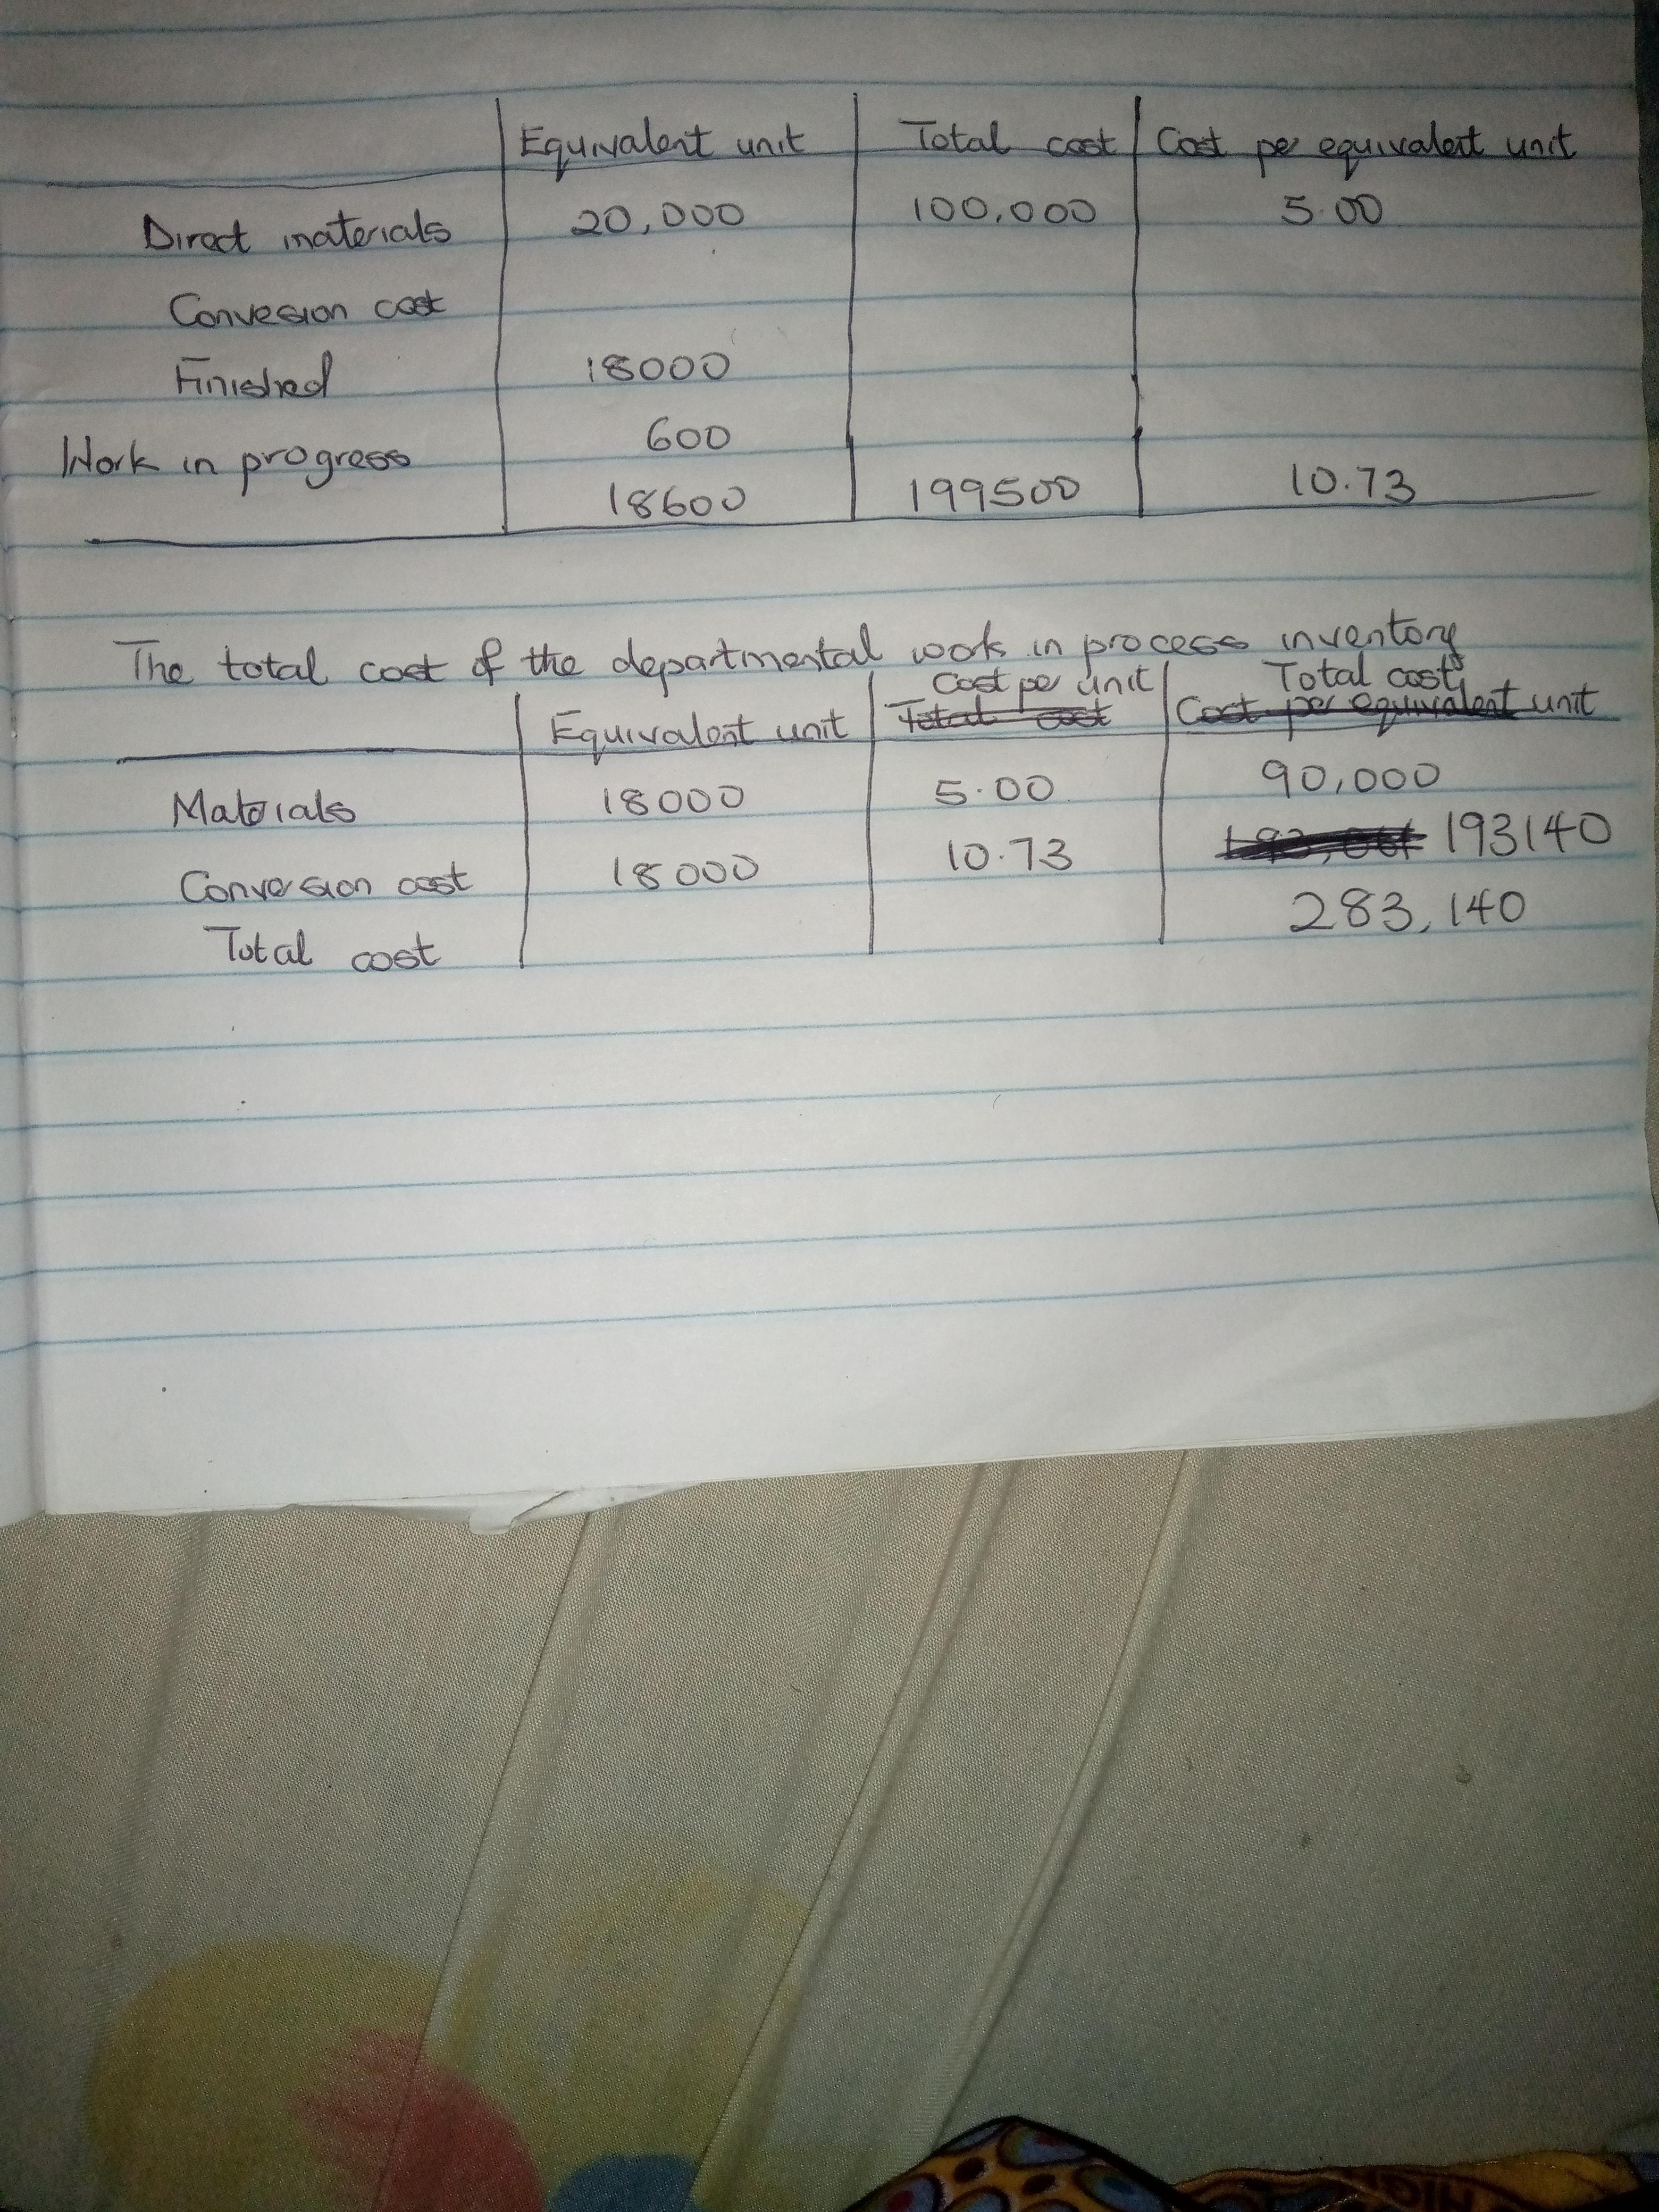 Equivalent unit Total cost Cost per equivalent unit
Direct materials 20,000 100,000 5.00
Convesion cost
Finished 18000
Work in progress 600
18600 199500 10.73
The total cost of the departmental work in process inventory
Cost per unit Total cost
Equivalent unit Total cost Cost per equivalent unit
Materials 18000 5.00 90,000
Conversion cost 18000 10.73 193140
Total cost 283,140